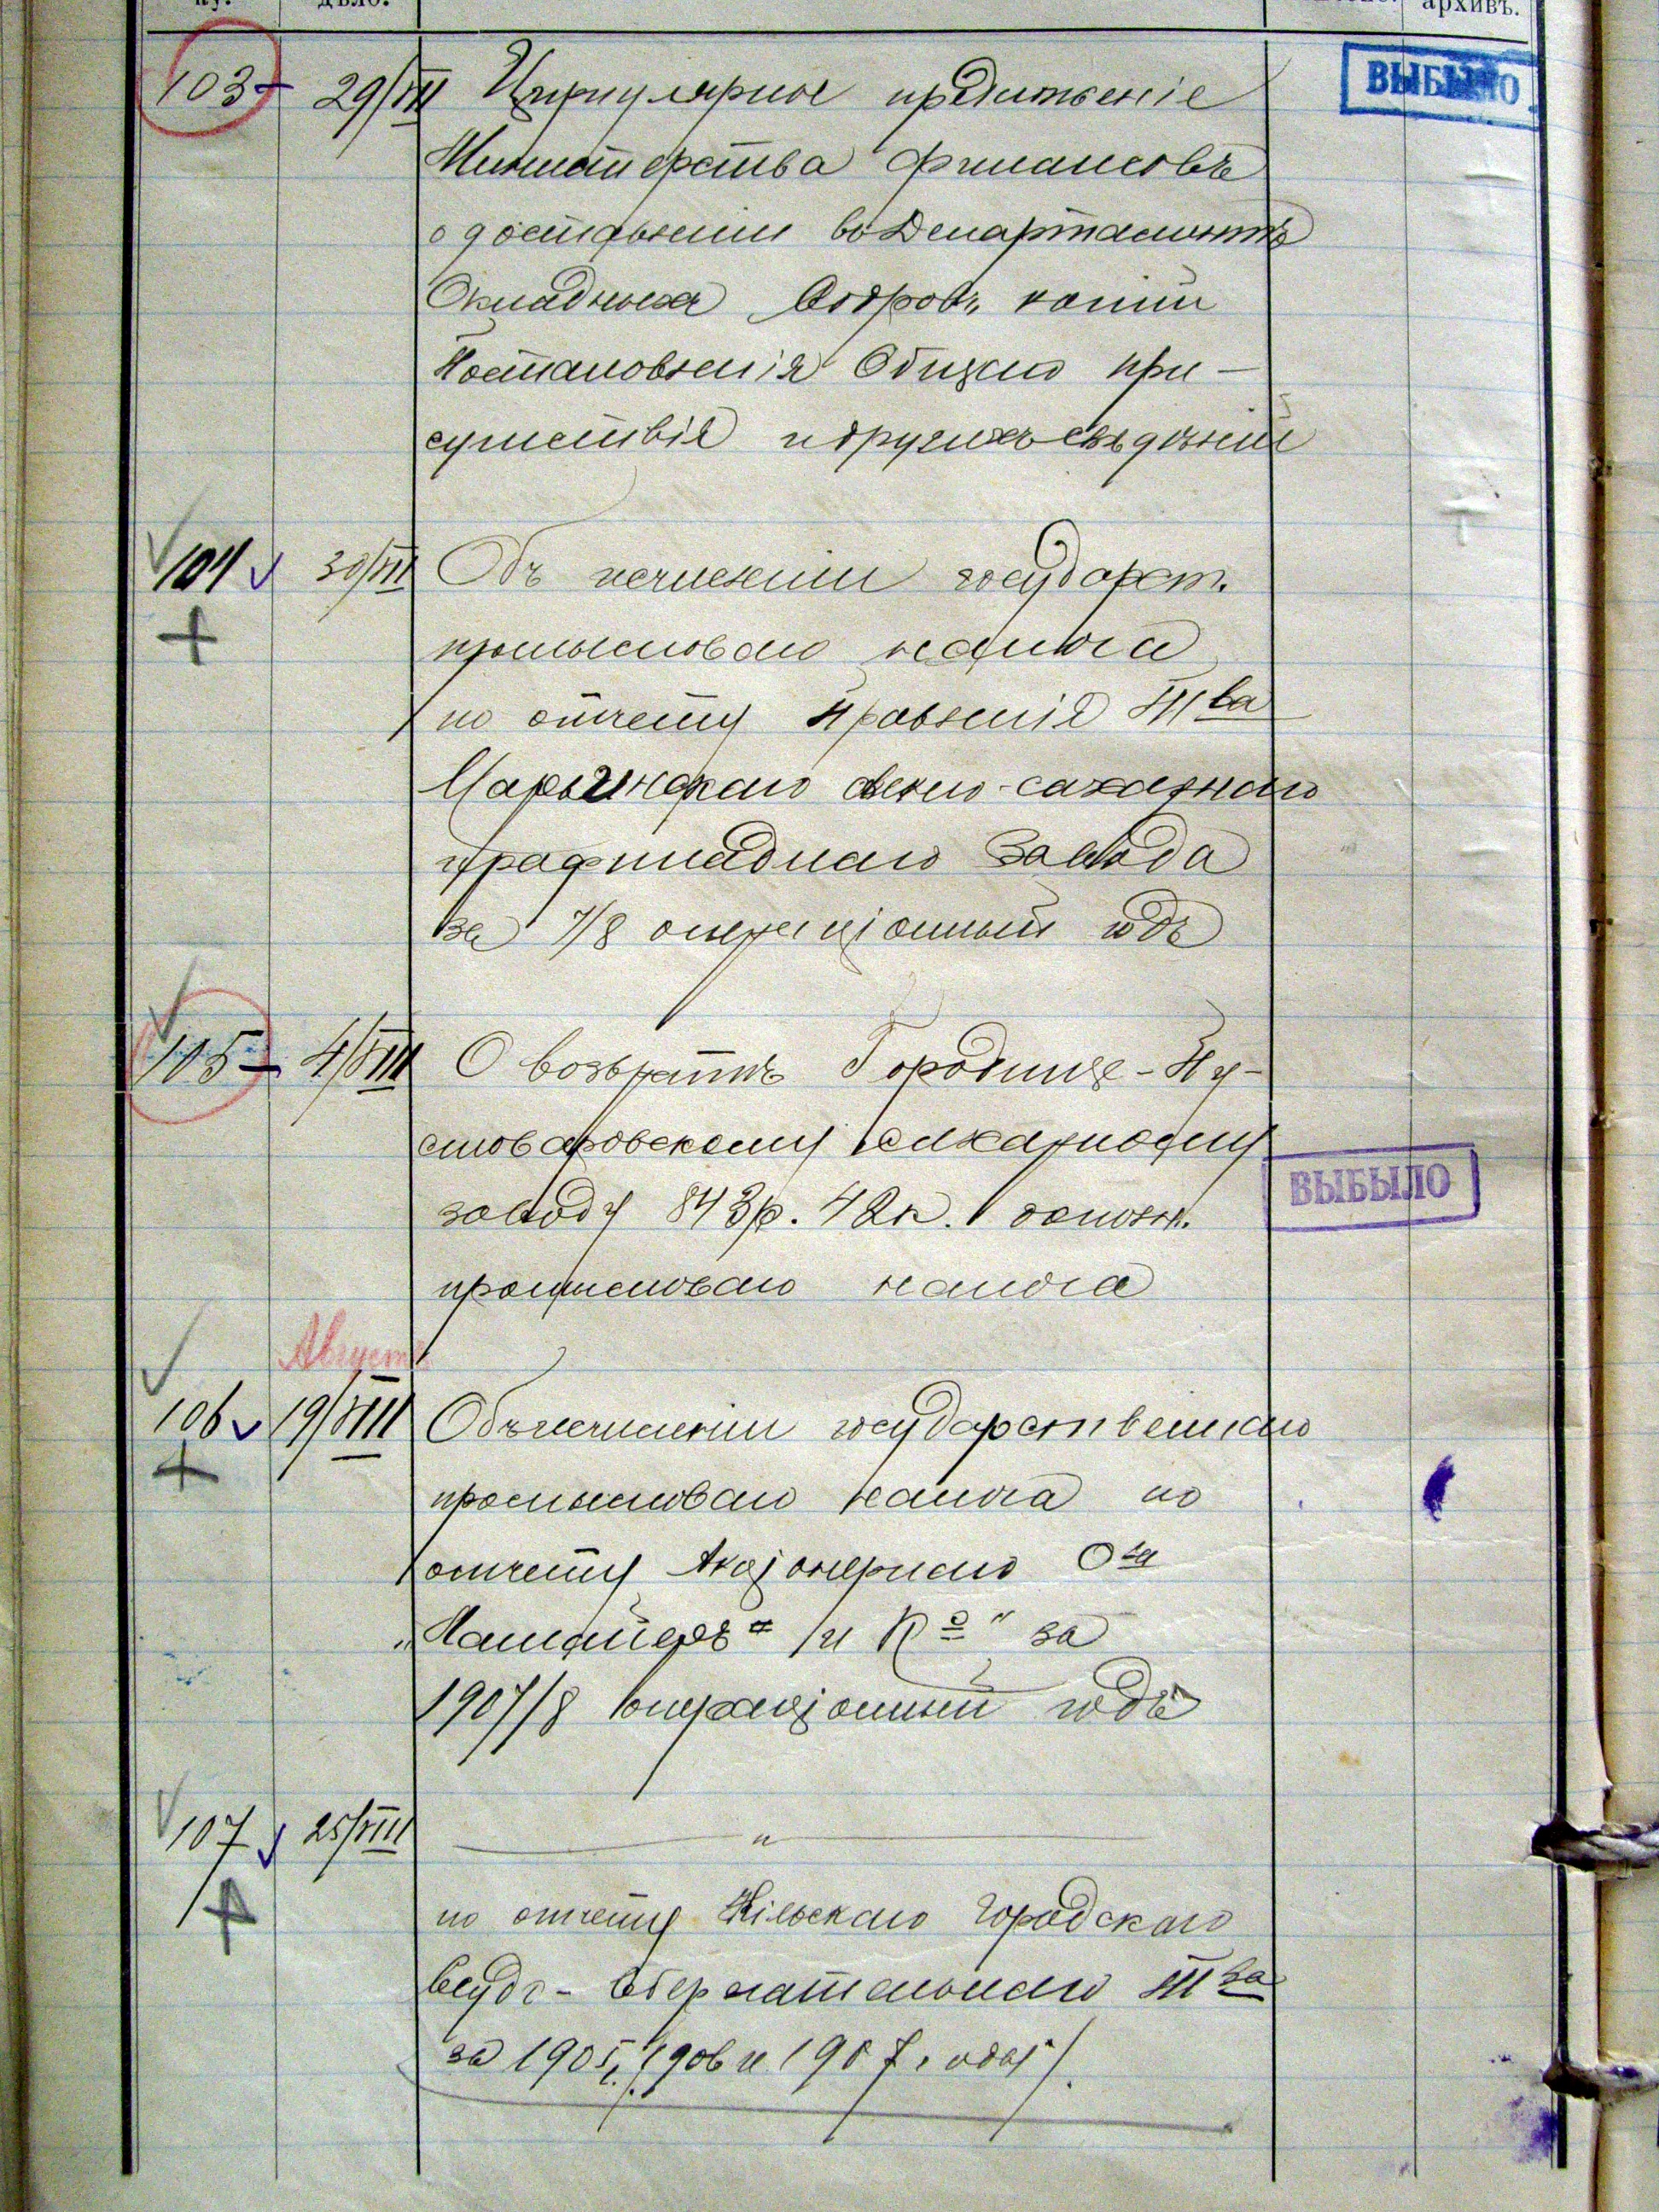 ну. дѣло. архивъ.
103 29/VII Циркулярное предложеніе ВЫБЫЛО
Министерства Финансовъ
о доставленіи въ Департаментъ
Окладныхъ Сборовъ копіи
Постановленія Общаго при-
сутствія и другихъ свѣдѣній
104 30/VII Объ исчисленіи государст.
промысловаго налога
по отчету Правленія Т-ва
свекло-сахарнаго
и рафинаднаго завода
за 7/8 операціонный годъ
105 4/VIII О возвратѣ Городище-Пу-
стоваровскому сахарному
заводу 843 р. 42 к. основн. ВЫБЫЛО
промысловаго налога
Августъ
106 19/VIII Объ исчисленіи государственнаго
промысловаго налога по
отчету Акціонернаго О-ва
и К-о" за
1907/8 операціонный годъ
107 25/VIII — " —
по отчету городского
Ссудо-Сберегательнаго Т-ва
за 1905, 1906 и 1907 годы.